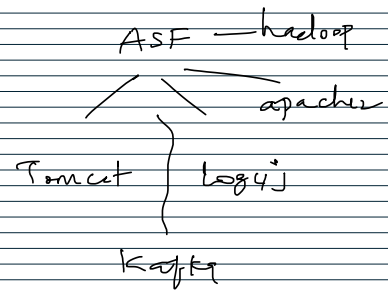 ASF — hadoop
apache2
Tomcat Log4j
Kafka